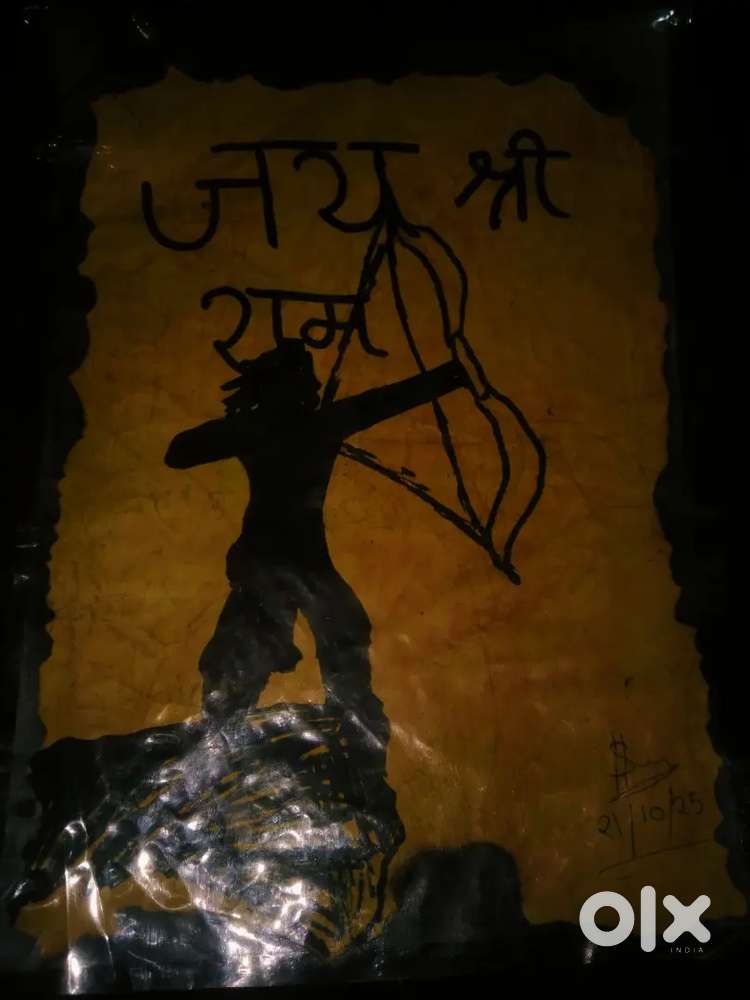 जय श्री
राम
21/10/25
olx
INDIA